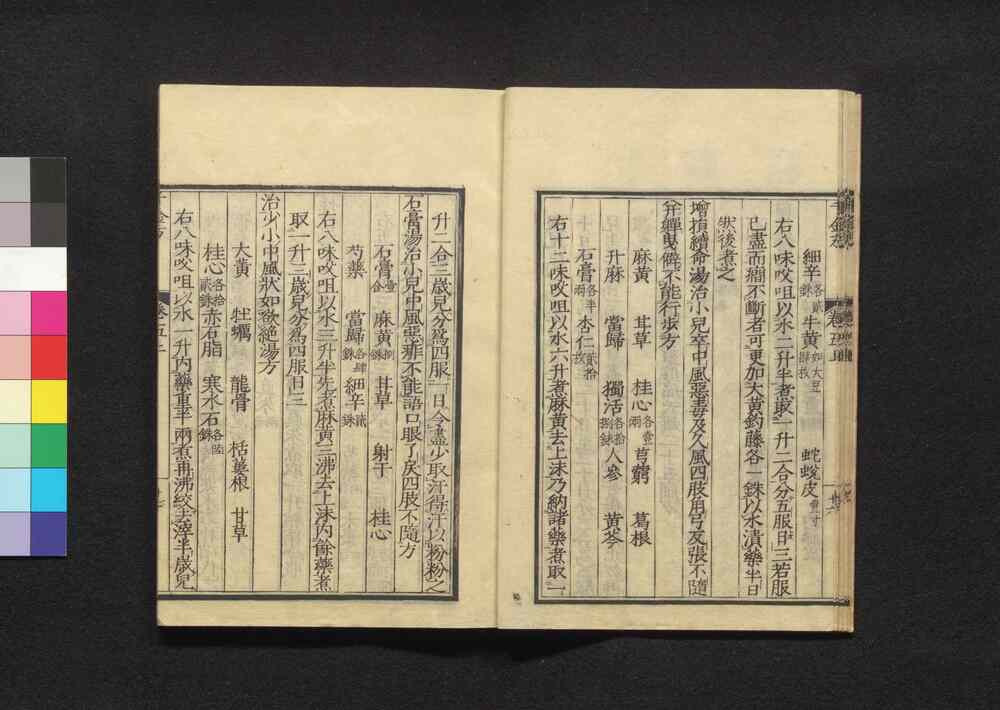 細辛各貳銖 牛黃如大豆肆枚 蛇蛻皮壹寸
右八味㕮咀以水二升半煮取一升二合分五服日三若服
已盡而癇不斷者可更加大黃釣藤各一銖以水漬藥半日
然後煮之
增損續命湯治小兒卒中風惡毒及久風四肢角弓反張不隨
并癉曳僻不能行步方
麻黃 甘草 桂心各壹兩 芎藭 葛根
升麻 當歸 獨活各拾捌銖 人參 黃芩
石膏各半兩 杏仁貳拾枚
右十二味㕮咀以水六升煮麻黃去上沫乃納諸藥煮取一
升二合三歲兒分為四服一日令盡少取汗得汗以粉粉之
石膏湯治小兒中風惡痱不能語口眼了戾四肢不隨方
石膏壹合 麻黃捌銖 甘草 射干 桂心
芍藥 當歸各肆銖 細辛貳銖
右八味㕮咀以水三升半先煮麻黃三沸去上沫內餘藥煮
取一升三歲兒分為四服日三
治少小中風狀如欲絕湯方
大黃 牡蠣 龍骨 栝蔞根 甘草
桂心各拾貳銖 赤石脂 寒水石各陸銖
右八味㕮咀以水一升內藥重半兩煮再沸絞去滓半歲兒
卷五上